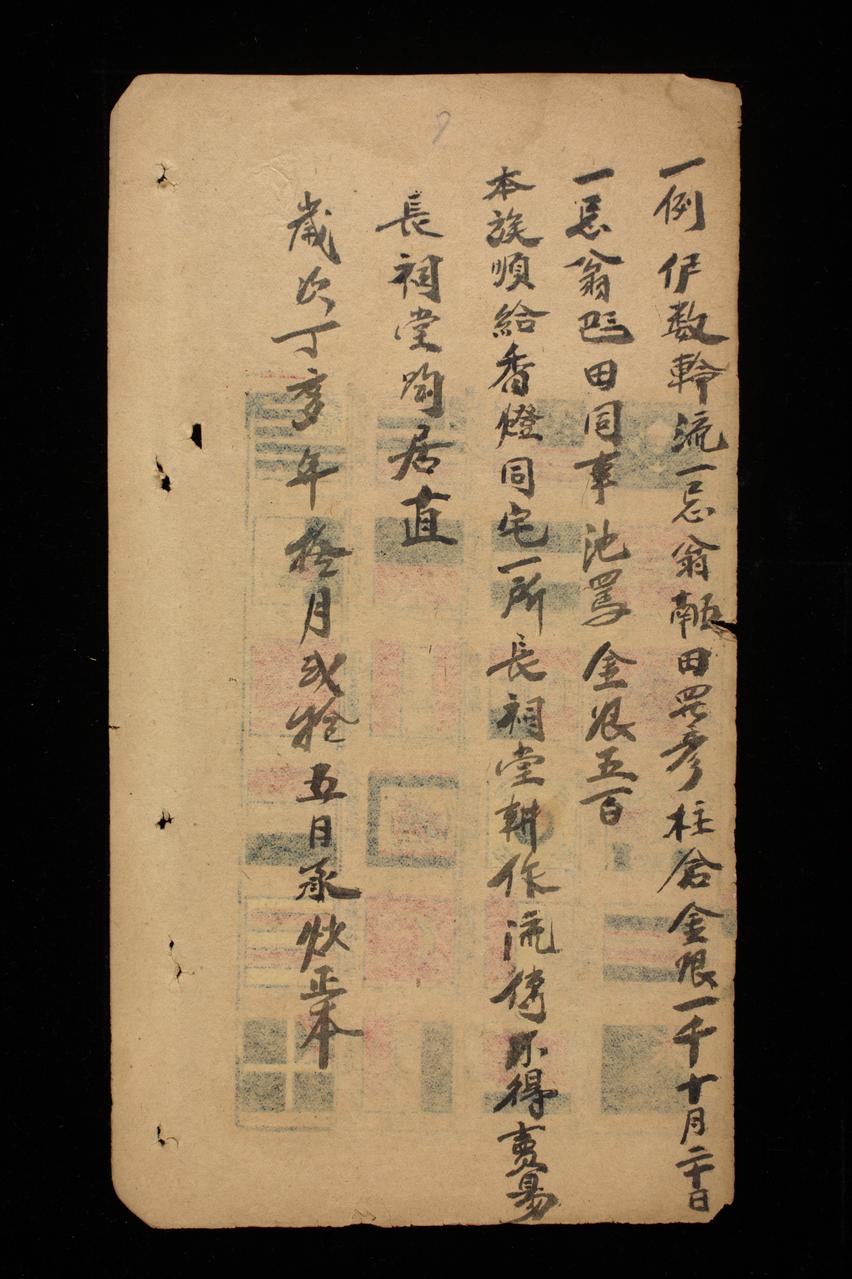 一例伊数輪流一忌翁𠄼田畧彥柱倉金限一千十月二十日
一忌翁𠀧田同事池罵金限五百
本族順給香燈同宅一所長祠堂耕作流傳不得賣易
長祠堂陶居直
歲次丁亥年拾月弍拾五日承炊正本